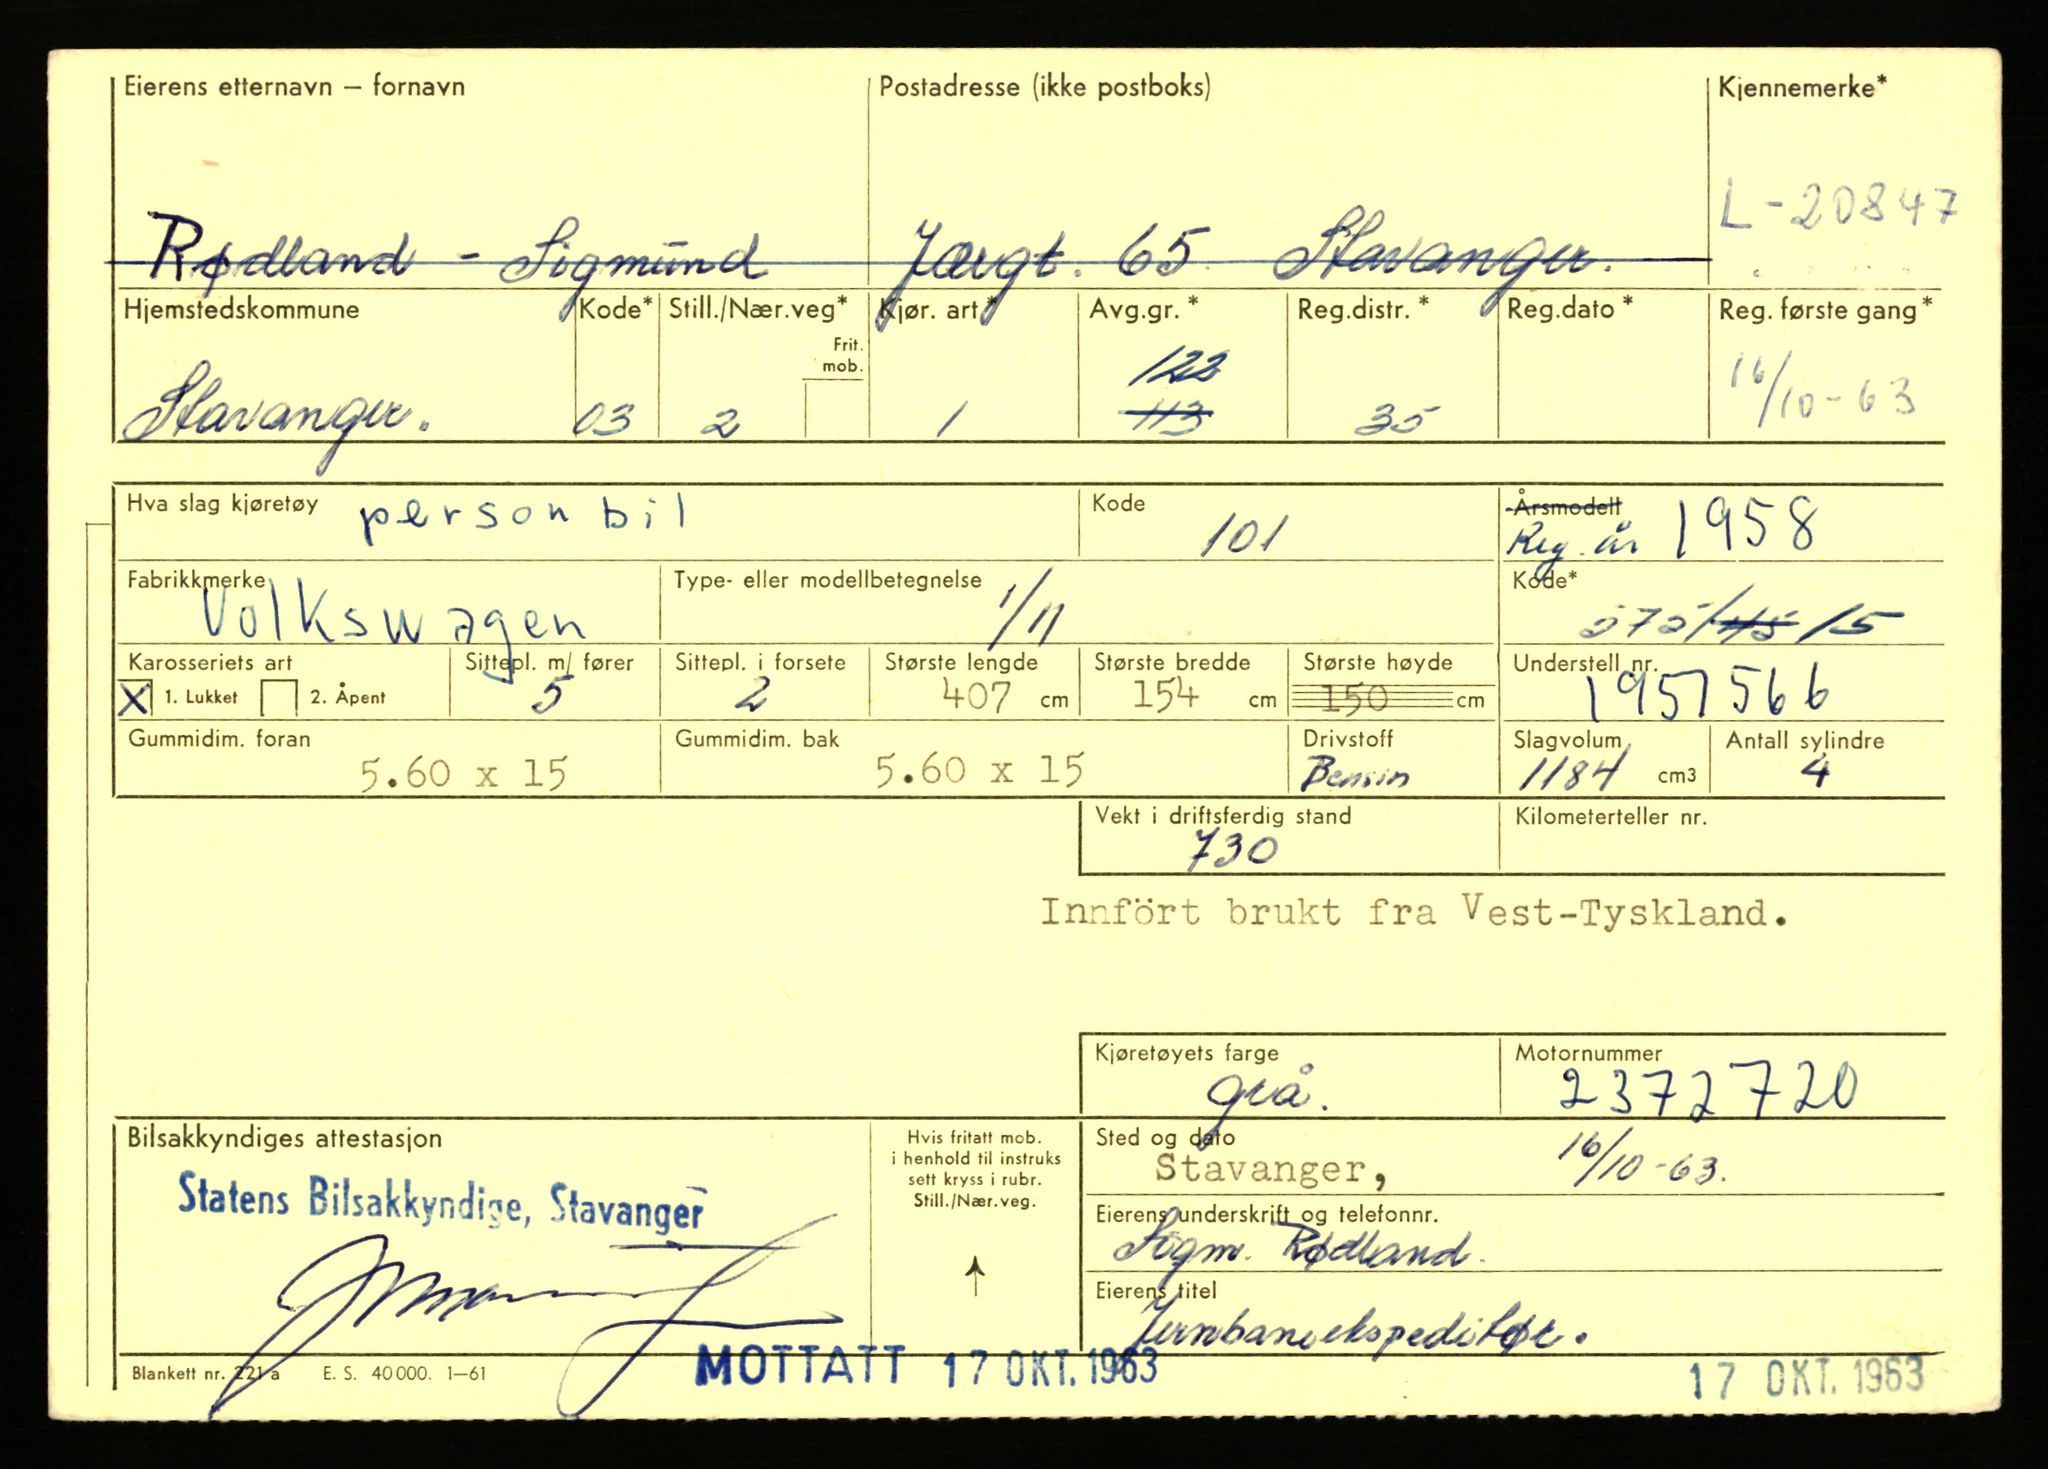 Eierens etternavn – fornavn Postadresse (ikke postboks) Kjennemerke*
L-20847
Rødland - Sigmund Jærgt. 65 Stavanger.
Hjemstedskommune Kode* Still./Nær.veg* Kjør. art* Avg.gr.* Reg.distr.* Reg.dato* Reg. første gang*
Frit. mob.
122
Stavanger. 03 2 1 113 35 16/10-63
Hva slag kjøretøy personbil Kode 101 Årsmodell Reg. år 1958
Fabrikkmerke Volkswagen Type- eller modellbetegnelse 1/11 Kode* 15
Karosseriets art Sittepl. m/ fører Sittepl. i forsete Største lengde Største bredde Største høyde Understell nr.
X 1. Lukket 2. Åpent 5 2 407 cm 154 cm 150 cm 1951566
Gummidim. foran Gummidim. bak Drivstoff Slagvolum Antall sylindre
5.60 x 15 5.60 x 15 Bensin 1184 cm3 4
Vekt i driftsferdig stand Kilometerteller nr.
730
Innfört brukt fra Vest-Tyskland.
Kjøretøyets farge Motornummer
grå. 2372720
Bilsakkyndiges attestasjon
Statens Bilsakkyndige, Stavanger
Hvis fritatt mob.
i henhold til instruks
sett kryss i rubr.
Still./Nær.veg.
Sted og dato
Stavanger, 16/10-63.
Eierens underskrift og telefonnr.
Sigm. Rødland.
Eierens titel
Jernbaneekspeditør.
Blankett nr. 221 a E. S. 40 000. 1—61
MOTTATT 17 OKT. 1963 17 OKT. 1963